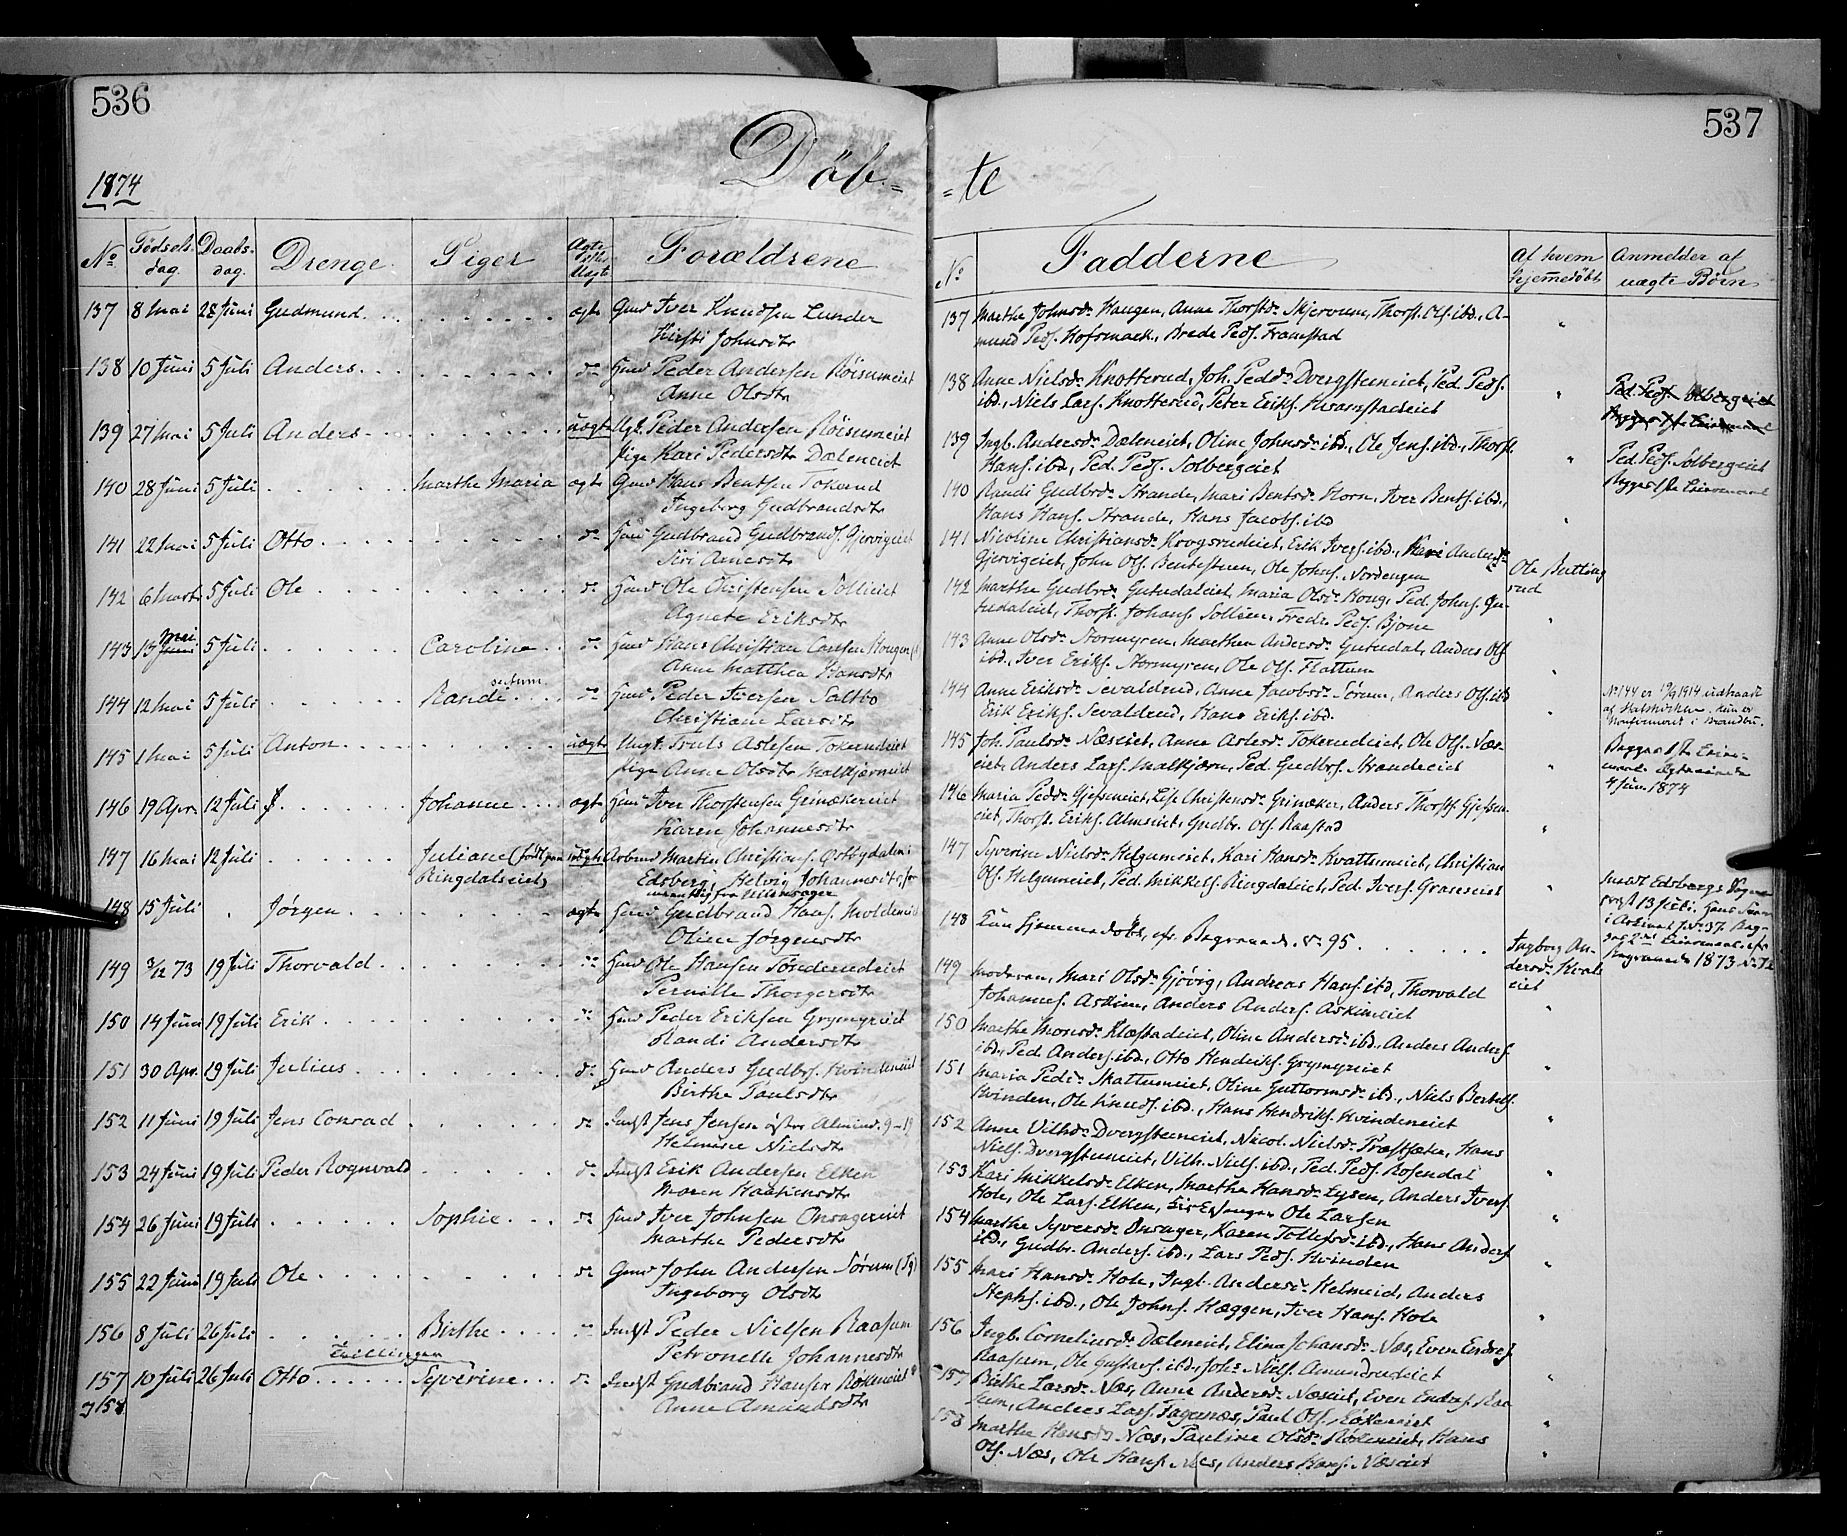 536
Døb-
1874
No Fødsels- dag. Daabs- dag. Drenge. Piger Ægte eller Uægte Forældrene
137 8 Mai 28 Juni Gudmund. ægte Gmd Iver Knudsen Lunder
Kirsti Johnsdtr
138 10 Juni 5 Juli Anders. do Hmd Peder Andersen Røisumeiet
Anne Olsdtr
139 27 Mai 5 Juli Anders. uægte Ugk. Peder Andersen Røisumeiet
Pige Kari Pedersdtr Dæleneiet
140 28 Juni 5 Juli Marthe Maria ægte Gmd Hans Bentsen Tokerud
Ingeborg Gudbrandsdtr
141 22 Mai 5 Juli Otto. do Hmd Gudbrand Gudbrands. Gjervigeiet
Siri Arnesdtr
142 6 Marts 5 Juli Ole do Hmd Ole Christensen Sollieiet
Agnete Eriksdtr
143 13 Mai 5 Juli Caroline do Hmd Hans Christian Hougen
Anne Matthea Hansdtr
144 12 Mai 5 Juli Randi do Hmd Peder Iversen Saltbo
Christiane Larsdtr
145 1 Mai 5 Juli Anton uægte Ungk. Truls Aslesen Tokerudeiet
Pige Anne Olsdtr Malkjærneiet
146 19 Apr. 12 Juli J. Johanne ægte Hmd Iver Thorstensen Grinakereiet
Karen Johannesdtr
147 16 Mai 12 Juli Juliane (født paa uægte Arbmd Martin Christians.
Ringdalseiet) Edsberg, Helvig Johannesdtr,
148 15 Juli Jørgen ægte Hmd Gudbrand Hans. Moldeneiet
Oline Jørgensdtr
149 3/12 73 19 Juli Thorvald do Hmd Ole Hansen Tønderudeiet
Pernille Thorgersdtr
150 14 Juni 19 Juli Erik do Hmd Peder Eriksen Grymyreiet
Randi Andersdtr
151 30 Apr. 19 Juli Julius do Hmd Anders Gudbrs. Kvindeneiet
Birthe Paulsdtr
152 11 Juni 19 Juli Jens Conrad do Indst Jens Jensen østre Almind. 9-19
Helmine Nielsdtr
153 24 Juni 19 Juli Peder Rognvald do Indst Erik Andersen Elken
Maren Haakensdtr
154 26 Juni 19 Juli Sophie do Hmd Iver Johnsen Onsagereiet
Marthe Pedersdtr
155 22 Juni 19 Juli Ole do Gmd John Andersen Sørum
Ingeborg Olsdtr
156 8 Juli 26 Juli Birthe do Indst Peder Nielsen Raasum
Petronelle Johannesdtr
Tvillinger
157 10 Juli 26 Juli Otto Syverine do Indst Gudbrand Hansen Røkeneiet
& 158 Anne Amundsdtr
537
-te
No Fadderne Af hvem Hjemmedøbt Anmelder af uægte Børn
137 Marthe Johnsdr Haugen, Anne Thorstdr Skjervum, Thorst. Ols. ibd., A-
mund Peds. Hofsmark., Brede Peds. Framstad
138 Anne Nielsdr Knotterud, Joh. Peddr Dvergsteneiet, Ped. Peds.
ibd., Niels Lars. Knotterud, Peter Eriks. Kramstadeiet
139 Ingb. Andersdr Dæleneiet, Oline Johnsdr ibd., Ole Jens. ibd., Thorst.
Hans. ibd., Ped. Peds. Solbergeiet
Ped. Peds. Solbergeiet
140 Randi Gudbrdr Strande, Mari Bentsdr Horn, Iver Bents. ibd.,
Hans Hans. Strande, Hans Jacobs. ibd
141 Nicoline Christiansdr Krogsrudeiet, Erik Ivers. ibd., Kari Andersdr
Gjervigeiet, John Ols. Bentestuen, Ole Johns. Nordengen
142 Marthe Gudbrdr Gutudaleiet, Maria Olsdr Houg, Ped. Johns. Gu-
tudaleiet, Thorst. Johans. Sollien, Fredr. Peds. Bjone
Ole Butting
rud
143 Anne Olsdr Stormyren, Marthea Andersdr Gutudal, Anders Ols
ibd., Iver Eriks. Stormyren, Ole Ols. Flattum
144 Anne Eriksdr Sevaldrud, Anne Jacobsdr Sørum, Anders Ols. ibd
Erik Eriks. Sevaldrud, Hans Eriks. ibd.
No 144 er 1914 udtraadt
af Statskirken. Kun er
konfirmeret i Brandbu.
145 Joh. Paulsdr Næseiet, Anne Aslesdr Tokerudeiet, Ole Ols. Næs-
eiet, Anders Lars. Malkjærn, Ped. Gudbrs. Strandeeiet
4 Juni 1874
146 Maria Peddr Gjefseneiet, Lise Christensdr Grinaker, Anders Thorsts. Gjefsen-
eiet, Thorst. Eriks. Almseiet, Gudbr. Ols. Raastad
147 Syverine Nielsdr Helgumeiet, Kari Hansdr Kvattumeiet, Christian
Ols. Helgumeiet, Ped. Mikkels. Ringdaleiet, Ped. Ivers. Granseiet
148 Kun hjemmedøbt, cfr. Begravede No 95.
Ingborg An-
dersdr Kvale
eiet
1873 No 72
149 Moderen, Mari Olsdr Gjøvig, Andreas Hans. ibd, Thorvald
Johannes. Askim, Anders Anders. Askimeiet
150 Marthe Monsdr Klæstadeiet, Oline Andersdr ibd., Anders Anders.
ibd., Ped. Anders. ibd., Otto Hendriks. Grymyreiet
151 Maria Peddr Skattumeiet, Oline Guttormsdr ibd., Niels Bertels.
Kvinden, Ole Knuds. ibd., Hans Hendriks. Kvindeneiet
152 Anne Vilhdr Dvergsteneiet, Nicol. Nielsdr Præstsæter, Hans
Niels. Dvergsteneiet, Vilh. Niels. ibd., Ped. Peds. Rosendal
153 Kari Mikkelsdr Elken, Marthe Hansdr Lysen, Anders Ivers.
Hole, Ole Lars. Elken, Ole Larsen
154 Marthe Syversdr Onsager, Karen Tollefsdr ibd., Hans Anders.
ibd., Gudbr. Anders. ibd., Lars Peds. Kvinden
155 Mari Hansdr Hole, Ingb. Andersdr Helmeid, Anders
Stephs. ibd., Ole Johns. Hæggen, Iver Hans. Hole
156 Ingb. Corneliusdr Dæleneiet, Elina Johansdr Næs, Even Endres.
Raasum, Ole Gustavs. ibd., Johs Niels. Amundrudeiet
157 Birthe Larsdr Næs, Anne Andersdr Næseiet, Even Endres. Raa
sum, Andres Lars. Fagernæs, Paul Ols. Røkeneiet
158 Marthe Hansdr Næs, Pauline Olsdr Røkeneiet, Hans
Ols. Næs, Ole Hans. Næs, Anders Hans. Næseiet